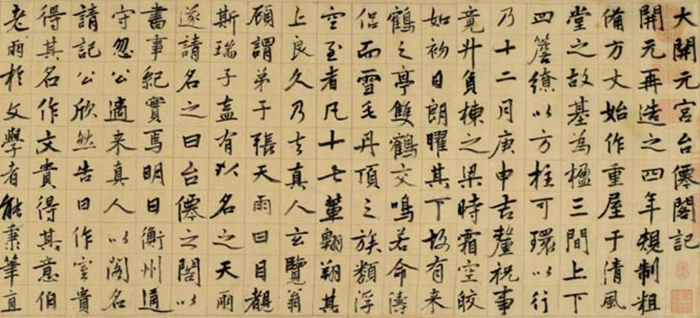 大開元宮台僊閣記
開元再造之四年規制粗
備方丈始作重屋于清風
堂之故基為楹三間上下
四簷繚以方柱可環以行
乃十二月庚申吉釐祝事
竟升負棟之梁時霜空皎
如初日朗曜其下故有来
鶴之亭雙鶴交鳴若命儔
侶而雪毛丹頂之族類浮
空至者凡十七輩翺翔其
上良久乃去真人玄覽翁
顧謂弟子張天雨曰目覩
斯瑞子盍有以名之天雨
遂請名之曰台僊之閣以
書事紀實焉明日衡州道
守忽公適来真人以閣名
請記公欣然告曰作室貴
得其名作文貴得其意伯
老雨於文學者能秉筆直